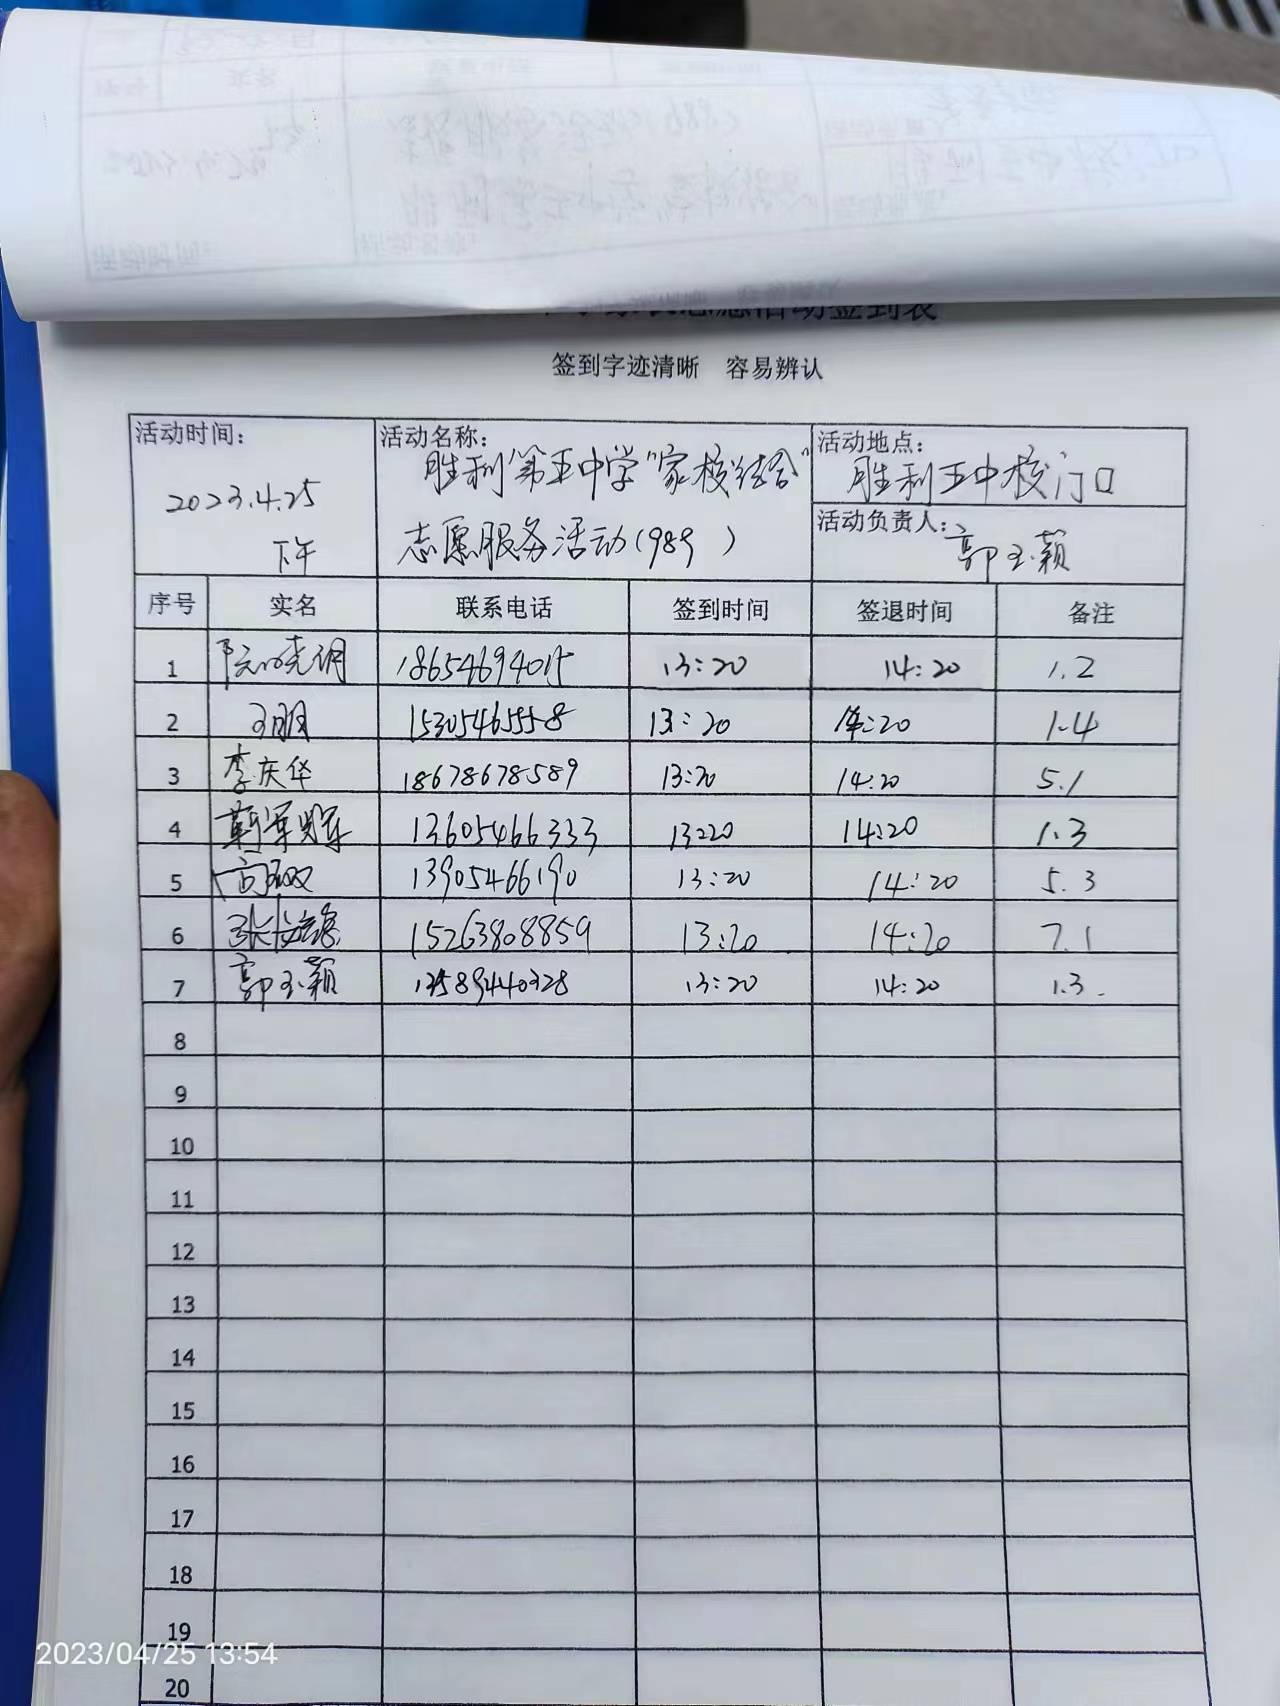 志愿活动签到表
签到字迹清晰 容易辨认
活动时间：
2023.4.25
下午
活动名称：
胜利第五中学"家校结合"
志愿服务活动(989 )
活动地点：
胜利五中校门口
活动负责人：
郭玉颖
序号 实名 联系电话 签到时间 签退时间 备注
1 13:20 14:20 1.2
2 王朋 15305465558 13:20 14:20 1.4
3 李庆华 18678678589 13:20 14:20 5.1
4 13605466333 13:20 14:20 1.3
5 13905466190 13:20 14:20 5.3
6 15263808859 13:20 14:20 7.1
7 郭玉颖 13589440328 13:20 14:20 1.3
8
9
10
11
12
13
14
15
16
17
18
19
20
2023/04/25 13:54